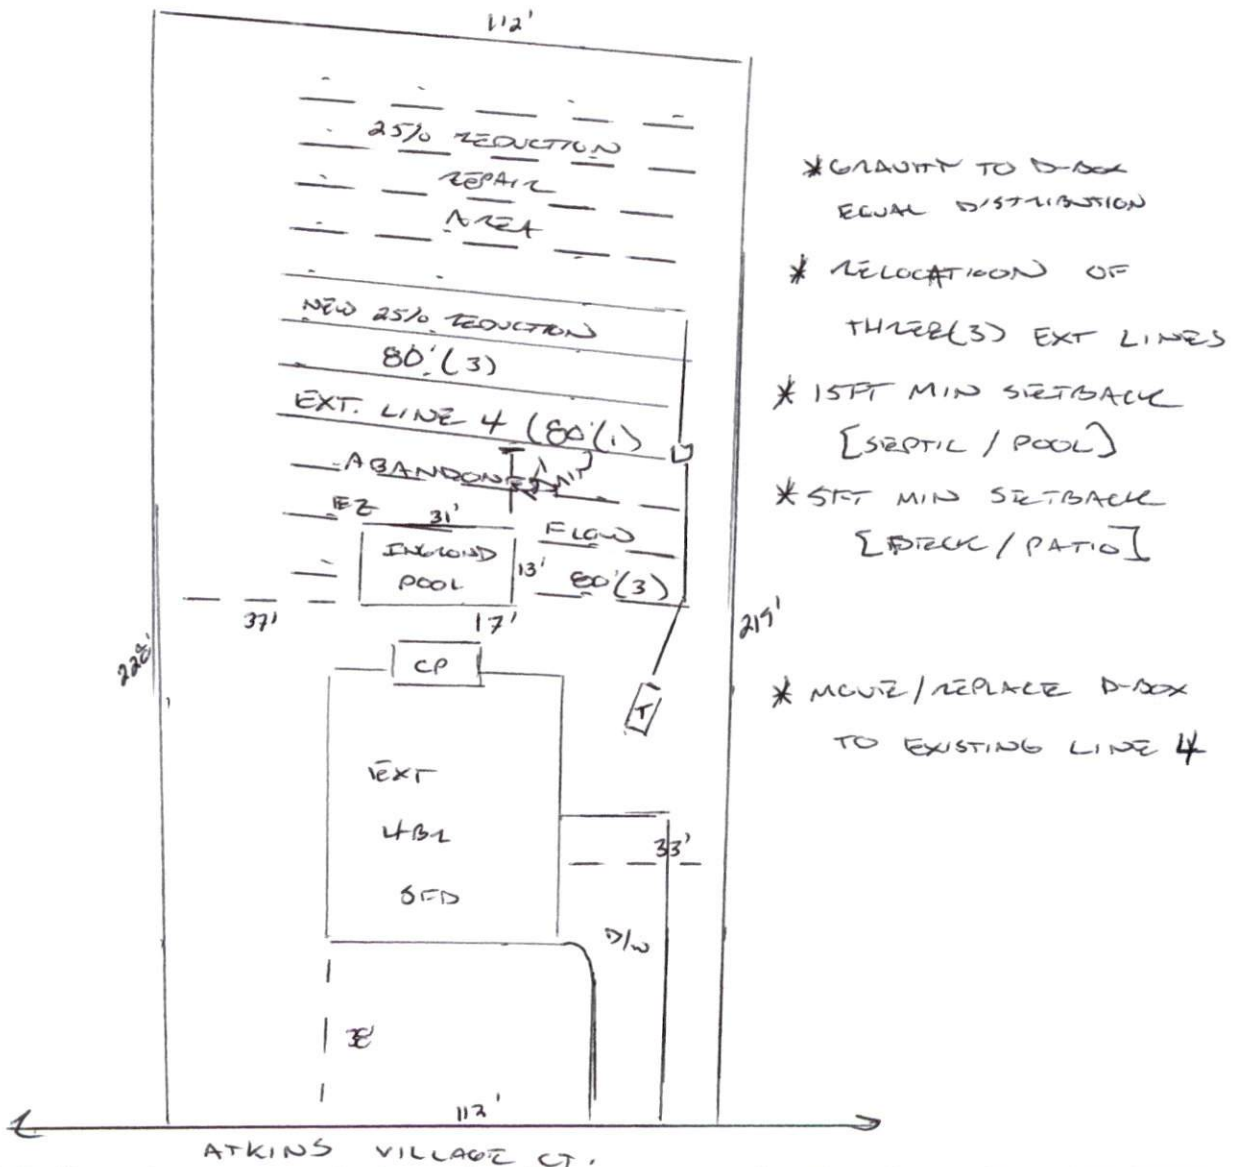 112'
25% REDUCTION
REPAIR
AREA
NEW 25% REDUCTION
80' (3)
EXT. LINE 4 (80'(1)
ABANDONED
EZ
FLOW
31'
INGROUND
POOL
13'
80'(3)
37'
17'
228'
219'
CP
T
EXT
4BR
SFD
33'
D/W
38'
112'
ATKINS VILLAGE CT.
* GRAVITY TO D-BOX
EQUAL DISTRIBUTION
* RELOCATIOON OF
THREE(3) EXT LINES
* 15FT MIN SETBACK
[SEPTIC / POOL]
* 5FT MIN SETBACK
[DECK / PATIO]
* MOVE/REPLACE D-BOX
TO EXISTING LINE 4